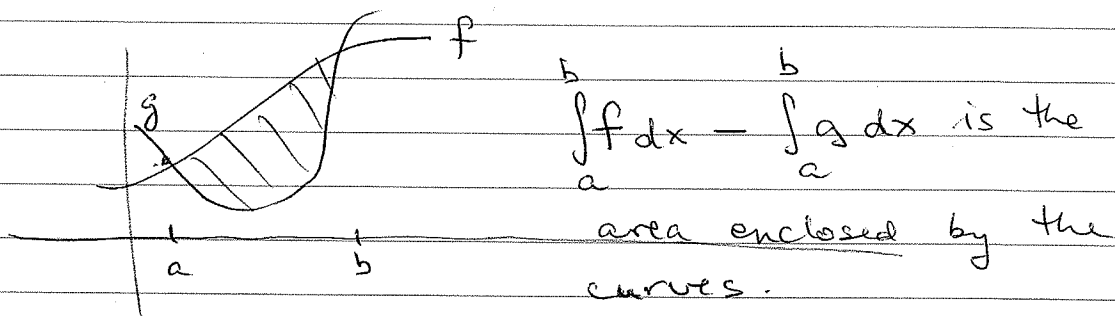 f
g
a b
∫_a^b f dx − ∫_a^b g dx is the
area enclosed by the
curves.